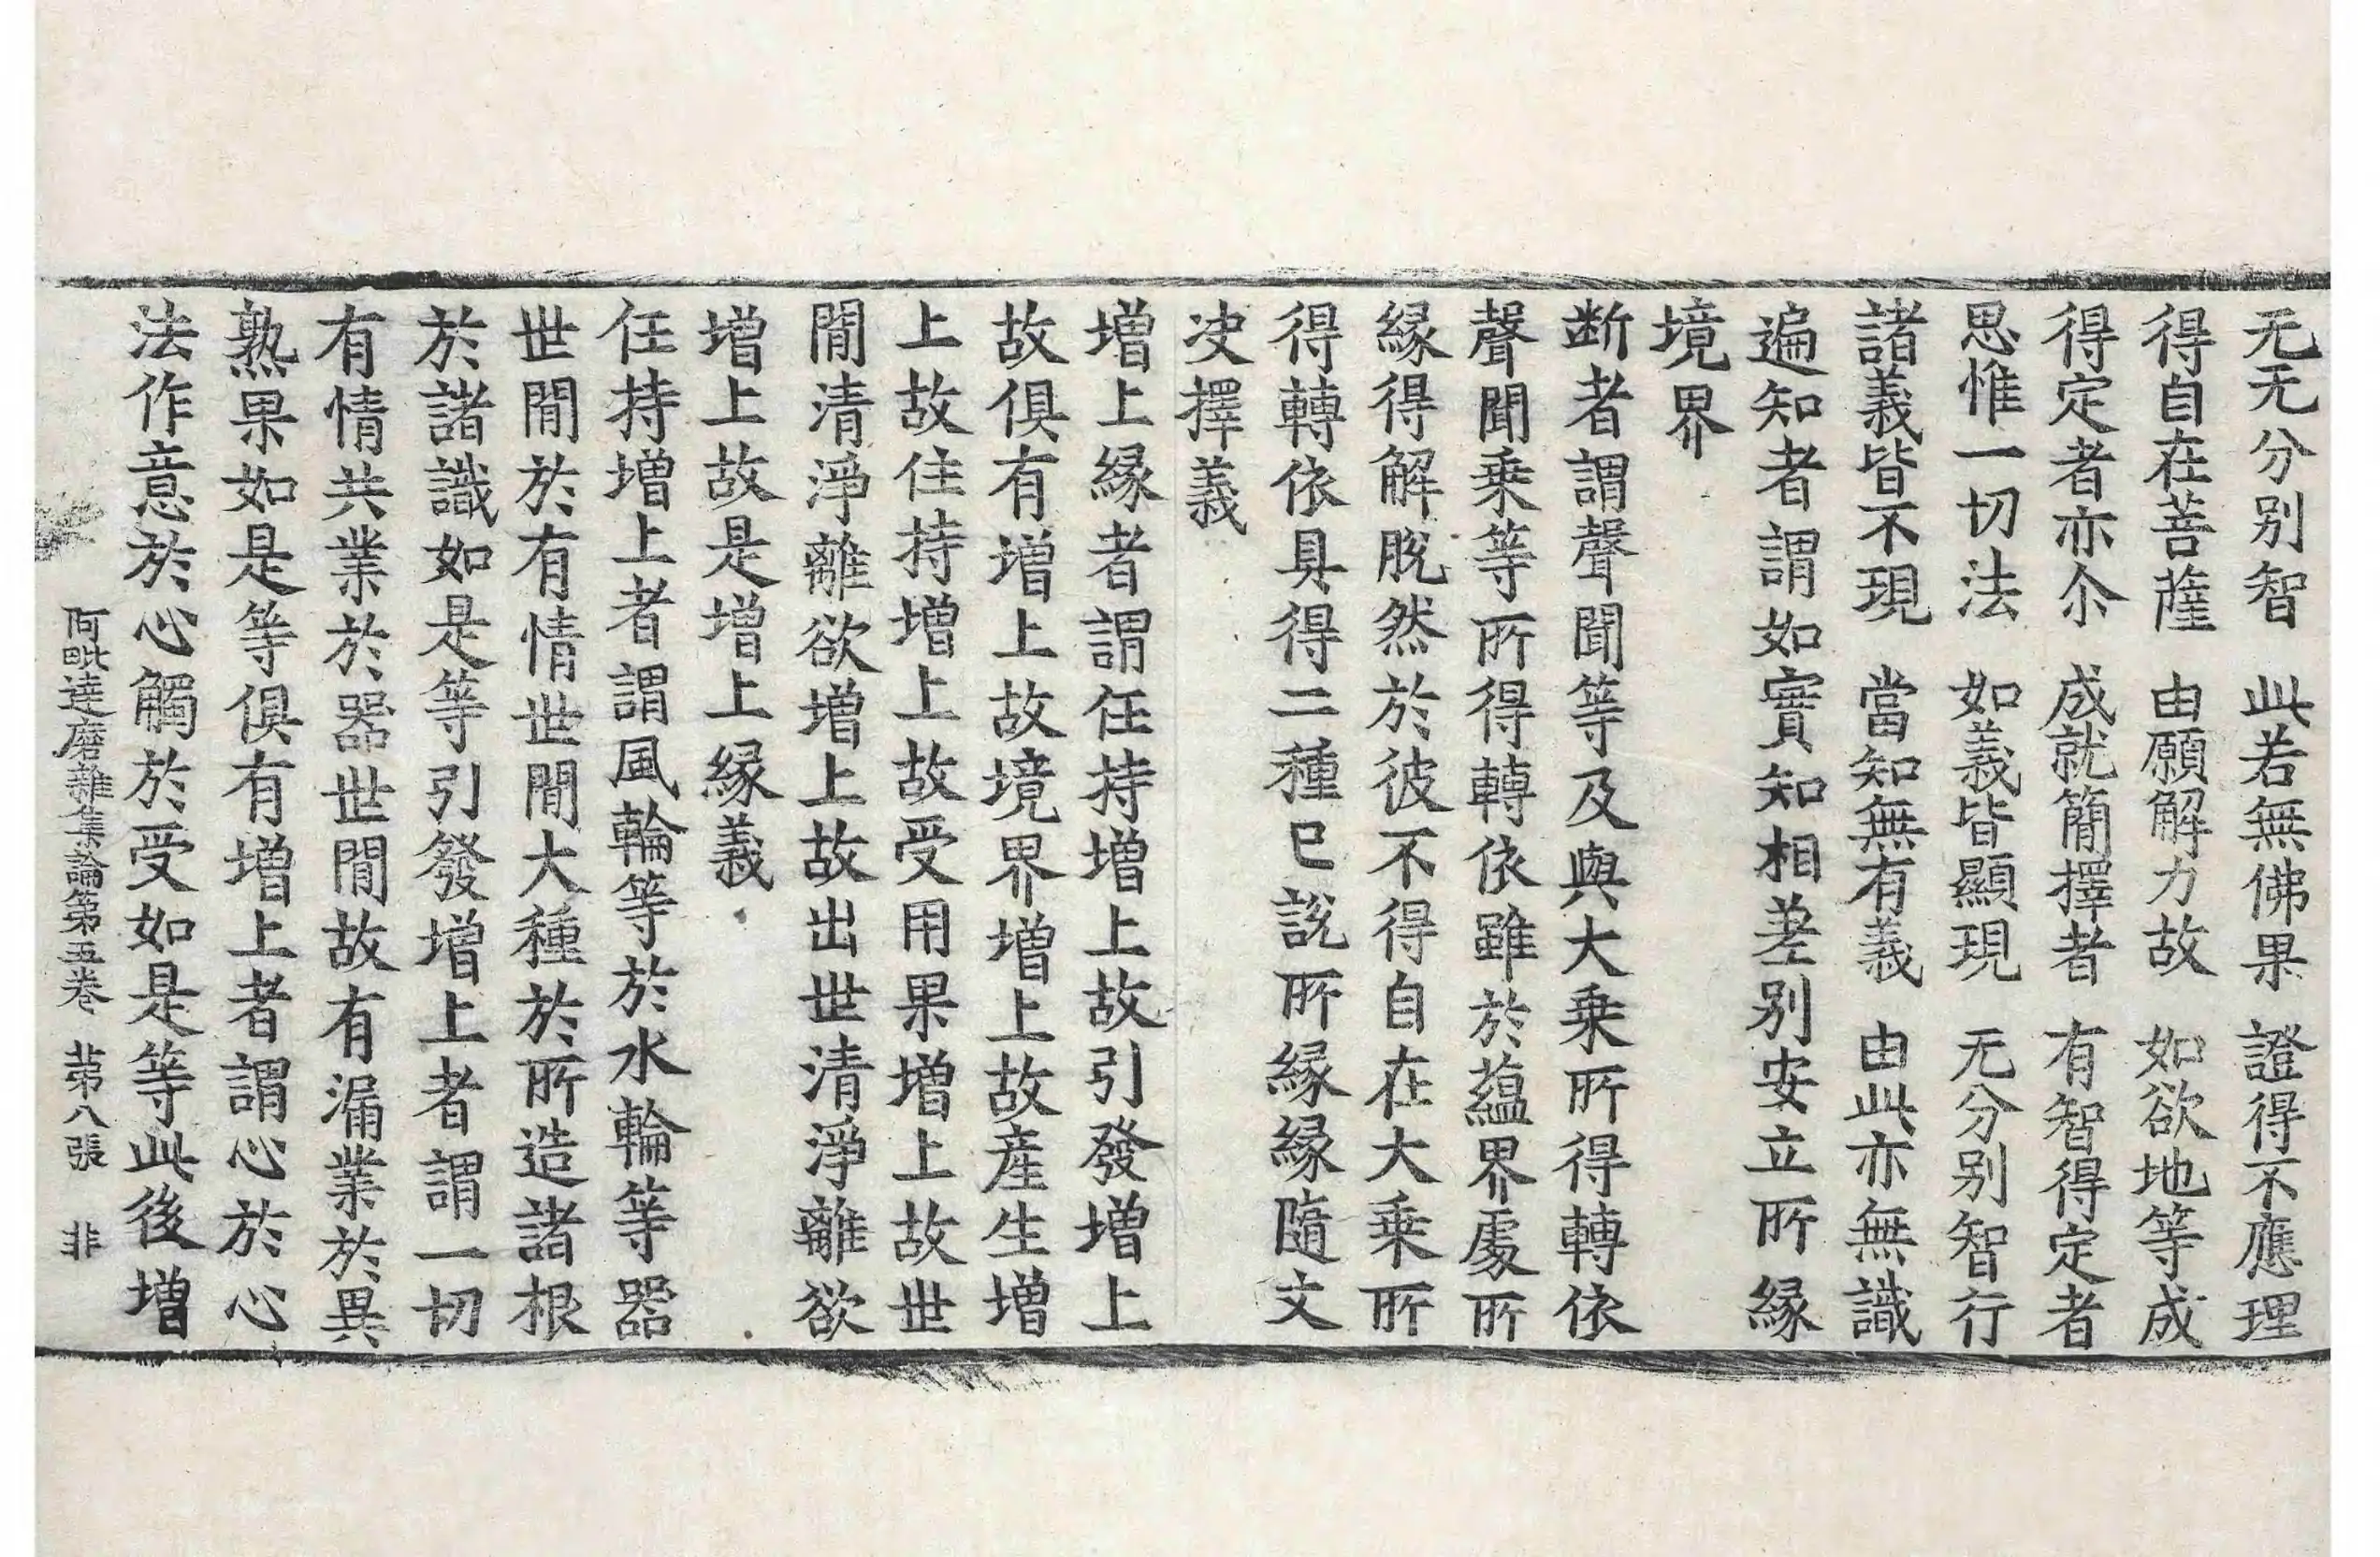 无无分别智　此若無佛果　證得不應理
得自在菩薩　由願解力故　如欲地等成
得定者亦尒　成就簡擇者　有智得定者
思惟一切法　如義皆顯現　无分别智行
諸義皆不現　當知無有義　由此亦無識
遍知者謂如實知相差别安立所緣
境界
断者謂聲聞等及與大乗所得轉依
聲聞乗等所得轉依雖於蘊界處所
緣得解脫然於彼不得自在大乗所
得轉依具得二種已說所緣緣隨文
决擇義
增上緣者謂任持增上故引發增上
故俱有增上故境界增上故產生增
上故住持增上故受用果增上故世
間清淨離欲增上故出世清淨離欲
增上故是增上緣義
任持增上者謂風輪等於水輪等器
世間於有情世間大種於所造諸根
於諸識如是等引發增上者謂一切
有情共業於器世間故有漏業於異
熟果如是等俱有增上者謂心於心
法作意於心觸於受如是等此後增
阿毗達磨雜集論第五卷　苐八張　非